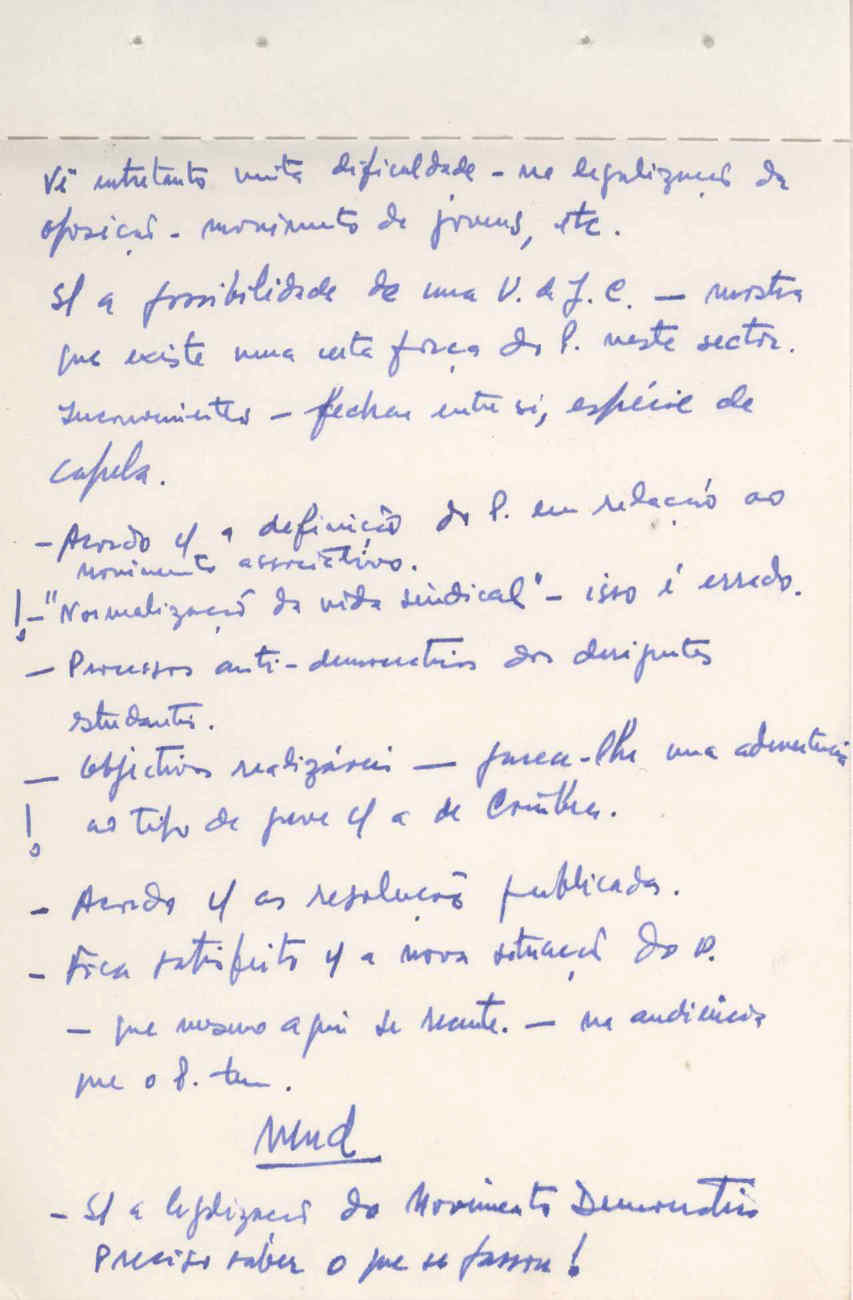 Vê entretanto muita dificuldade - na legalização da
oposição - movimento de jovens, etc.
S/ a possibilidade de uma U. da J. C. — mostra
que existe uma certa força do P. neste sector.
Inconvenientes — fechar entre si, espécie de
capela.
- Acordo c/ a definição do P. em relação ao
movimento associativo.
! - "Normalização da vida sindical" - isso é errado.
— Processos anti-democráticos dos dirigentes
estudantis.
— Objectivos realizáveis — parece-lhe uma advertência
! ao tipo de greve c/ a de Coimbra.
- Acordo c/ as resoluções publicadas.
- Fica satisfeito c/ a nova situação do P.
— que mesmo aqui se sente. — na audiência
que o P. tem.
Mud
- S/ a legalização do Movimento Democrático
Preciso saber o que se passou!